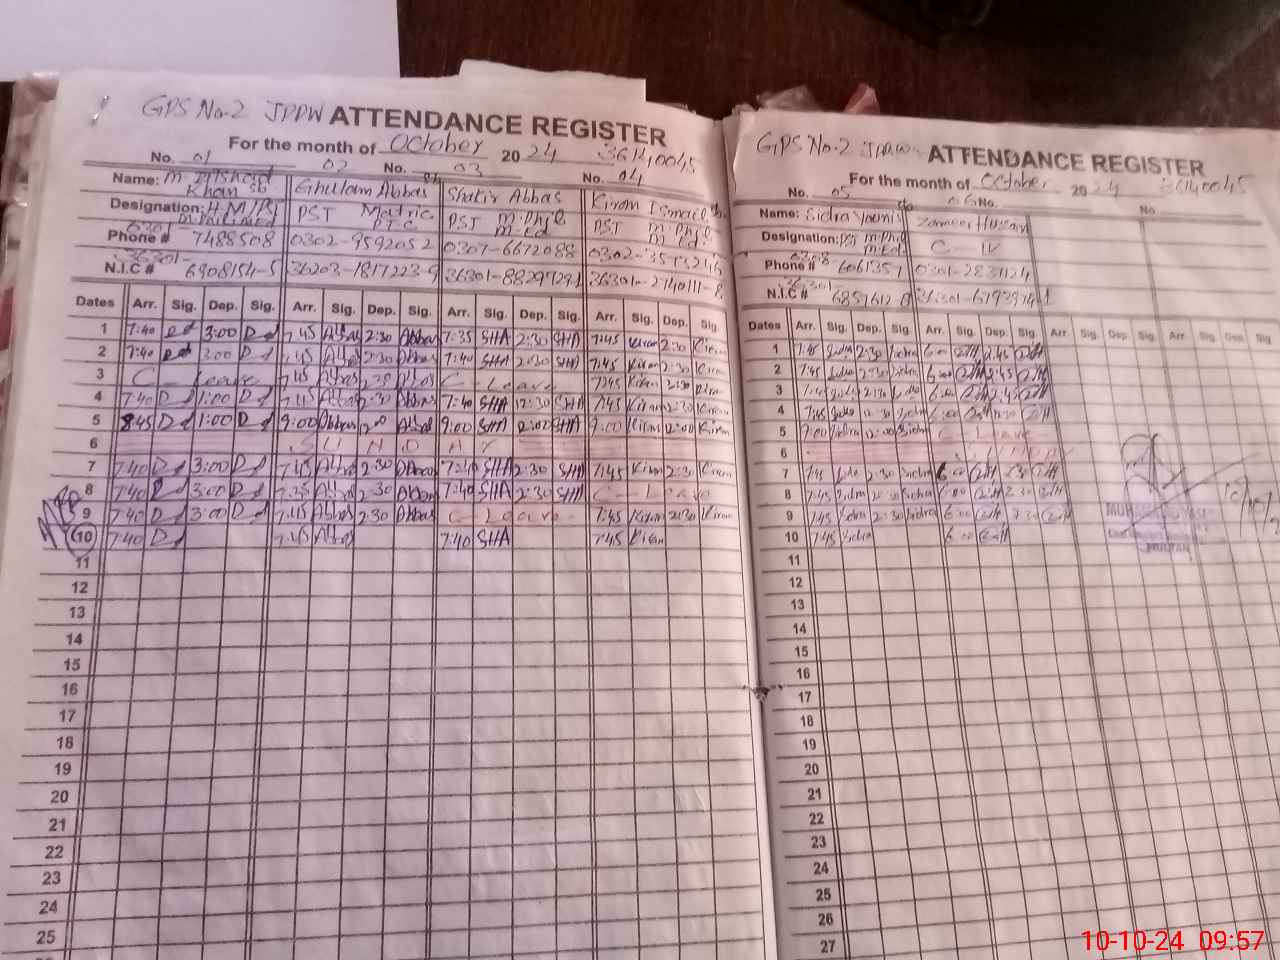 GPS No-2 JPPW ATTENDANCE REGISTER
For the month of October 2024 36140045
No. 01 02 No. 03 No. 04
Name: M. Khan sb Ghulam Abbas Shakir Abbas Kiran Ismail
Designation: PST Matric PTC PST M.Phil M.ed PST M.Phil M.ed
Phone # 7488508 0302-9592052 0307-6672088
N.I.C # 36301- 6908154-5 36203-1817223-9
Dates Arr. Sig. Dep. Sig. Arr. Sig. Dep. Sig. Arr. Sig. Dep. Sig. Arr. Sig. Dep. Sig.
1 7:40 3:00 7:45 Abbas 2:30 Abbas 7:35 SHA 2:30 SHA 7:45 Kiran 2:30 Kiran
2 7:40 3:00 7:45 Abbas 2:30 Abbas 7:40 SHA 2:30 SHA 7:45 Kiran 2:30 Kiran
3 C - Leave 7:45 Abbas 2:30 Abbas C - Leave 7:45 Kiran 2:30 Kiran
4 7:40 1:00 7:45 Abbas 7:40 SHA 12:30 SHA 7:45 Kiran 12:30 Kiran
5 8:45 1:00 9:00 Abbas 12:00 Abbas 9:00 SHA 12:00 SHA 9:00 Kiran 12:00 Kiran
6 SUNDAY
7 7:40 3:00 7:45 Abbas 2:30 Abbas 7:40 SHA 2:30 SHA 7:45 Kiran 2:30 Kiran
8 7:40 3:00 7:45 Abbas 2:30 Abbas 7:40 SHA 2:30 SHA C - Leave
9 7:40 3:00 7:45 Abbas 2:30 Abbas C - Leave 7:45 Kiran 2:30 Kiran
10 7:40 7:45 Abbas 7:40 SHA 7:45 Kiran
11
12
13
14
15
16
17
18
19
20
21
22
23
24
25
GPS No-2 JPPW ATTENDANCE REGISTER
For the month of October 2024 36140045
No. 05 06 No. No.
Name: Sidra Younis Zameer Hussain
Designation: PST M.Phil M.ed C - IV
Phone # 6061357 0301-2831124
N.I.C # 36301
Dates Arr. Sig. Dep. Sig. Arr. Sig. Dep. Sig. Arr. Sig. Dep. Sig. Arr. Sig. Dep. Sig
1 7:45 Sidra 2:30 Sidra 6:00 2:45
2 7:45 Sidra 2:30 Sidra 6:00 2:45
3 7:45 Sidra 2:30 Sidra 6:00 2:45
4 7:45 Sidra 12:30 Sidra 6:00
5 9:00 Sidra 12:00 Sidra C - Leave
6 SUNDAY
7 7:45 Sidra 2:30 Sidra 6:00 2:30
8 7:45 Sidra 2:30 Sidra 6:00 2:30
9 7:45 Sidra 2:30 Sidra 6:00 2:30
10 7:45 Sidra 6:00
MULTAN
11
12
13
14
15
16
17
18
19
20
21
22
23
24
25
26
27
10-10-24 09:57